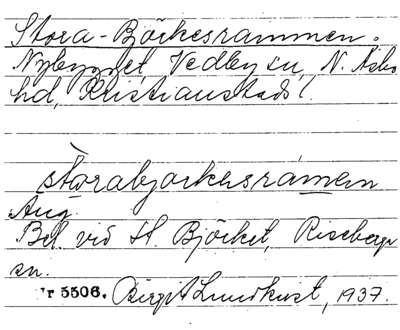 Stora-Björkesrammen.
Nybygget Vedby sn, N. Åsbo
hd, Kristianstads l.
storabjörkesrámen
Äng
Bel. vid St. Björket, Riseberga
sn.
Nr 5506. Birgit Lundkvist, 1937.